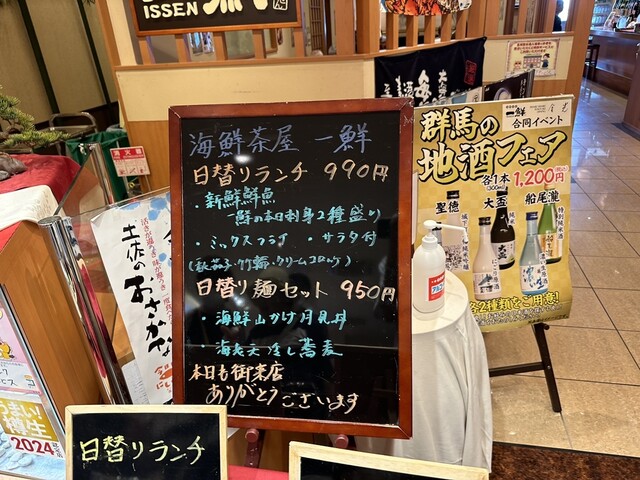 ISSEN
海鮮茶屋 一鮮
日替りランチ 990円
・新鮮鮮魚
一鮮の本日刺身2種盛り
・ミックスフライ ・サラダ付
(秋茄子・竹輪・クリームコロッケ)
日替り麺セット 950円
・海鮮山かけ月見丼
・海老天冷し蕎麦
本日も御来店
ありがとうございます
日替りランチ
土佐のおさかな
2024
一鮮
合同イベント
群馬の
地酒フェア
各1本
(300ml)
1,200円
聖徳
大盃
船尾瀧
純米吟醸
特別純米酒
各2種類をご用意!
消火器